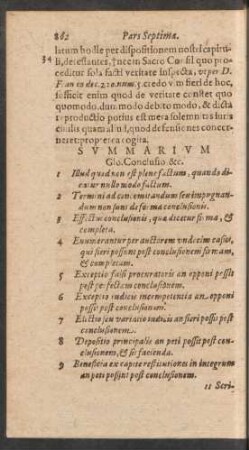 862 Pars Septima.
litum hodie per dispositionem nostri capitu-
34 li, detestantes, & necin Sacro Consil quo pro-
ceditur sola facti veritate inspecta, vt per D.
F. an eo dec. 270. num. 5. credo vim fieri de hoc,
sufficit enim quod de veritate constet quo
quomodo, dummodo debito modo, & dicta
productio potius est mera solemnitas iuris
ciuilis quam aliud, quod defensiones concer-
neret: propterea cogita.
SVMMARIVM
Glo. Conclusio &c.
1 Illud quod non est plene factum, quando di-
catur nullo modo factum.
2 Termini ad concernendum seu impugnan-
dum non sunt de forma conclusionis.
3 Effectus conclusionis, quæ dicatur forma, &
completa.
4 Enumerantur per auctorem vndecim casus,
qui fieri possunt post conclusionem firmam,
& completam.
5 Exceptio falsi procuratoris an opponi possit
post perfectam conclusionem.
6 Exceptio iudicis incompetentis an opponi
possit post conclusionem.
7 Electio seu variatio iudicis an fieri possit post
conclusionem.
8 Depositio principalis an peti possit post con-
clusionem, & sic facienda.
9 Beneficia ex capite restitutionis in integrum
an peti possint post conclusionem.
11 Scri-